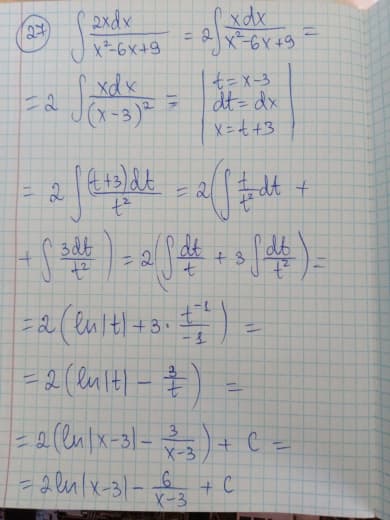 27 ∫ 2xdx / (x²-6x+9) = 2∫ xdx / (x²-6x+9) =
= 2 ∫ xdx / (x-3)² = | t = x-3
dt = dx
x = t+3 |
= 2 ∫ (t+3)dt / t² = 2(∫ t/t² dt +
+ ∫ 3dt / t² ) = 2(∫ dt/t + 3∫ dt/t² ) =
= 2(ln|t| + 3· t⁻¹/-1 ) =
= 2(ln|t| - 3/t ) =
= 2(ln|x-3| - 3/(x-3) ) + C =
= 2ln|x-3| - 6/(x-3) + C